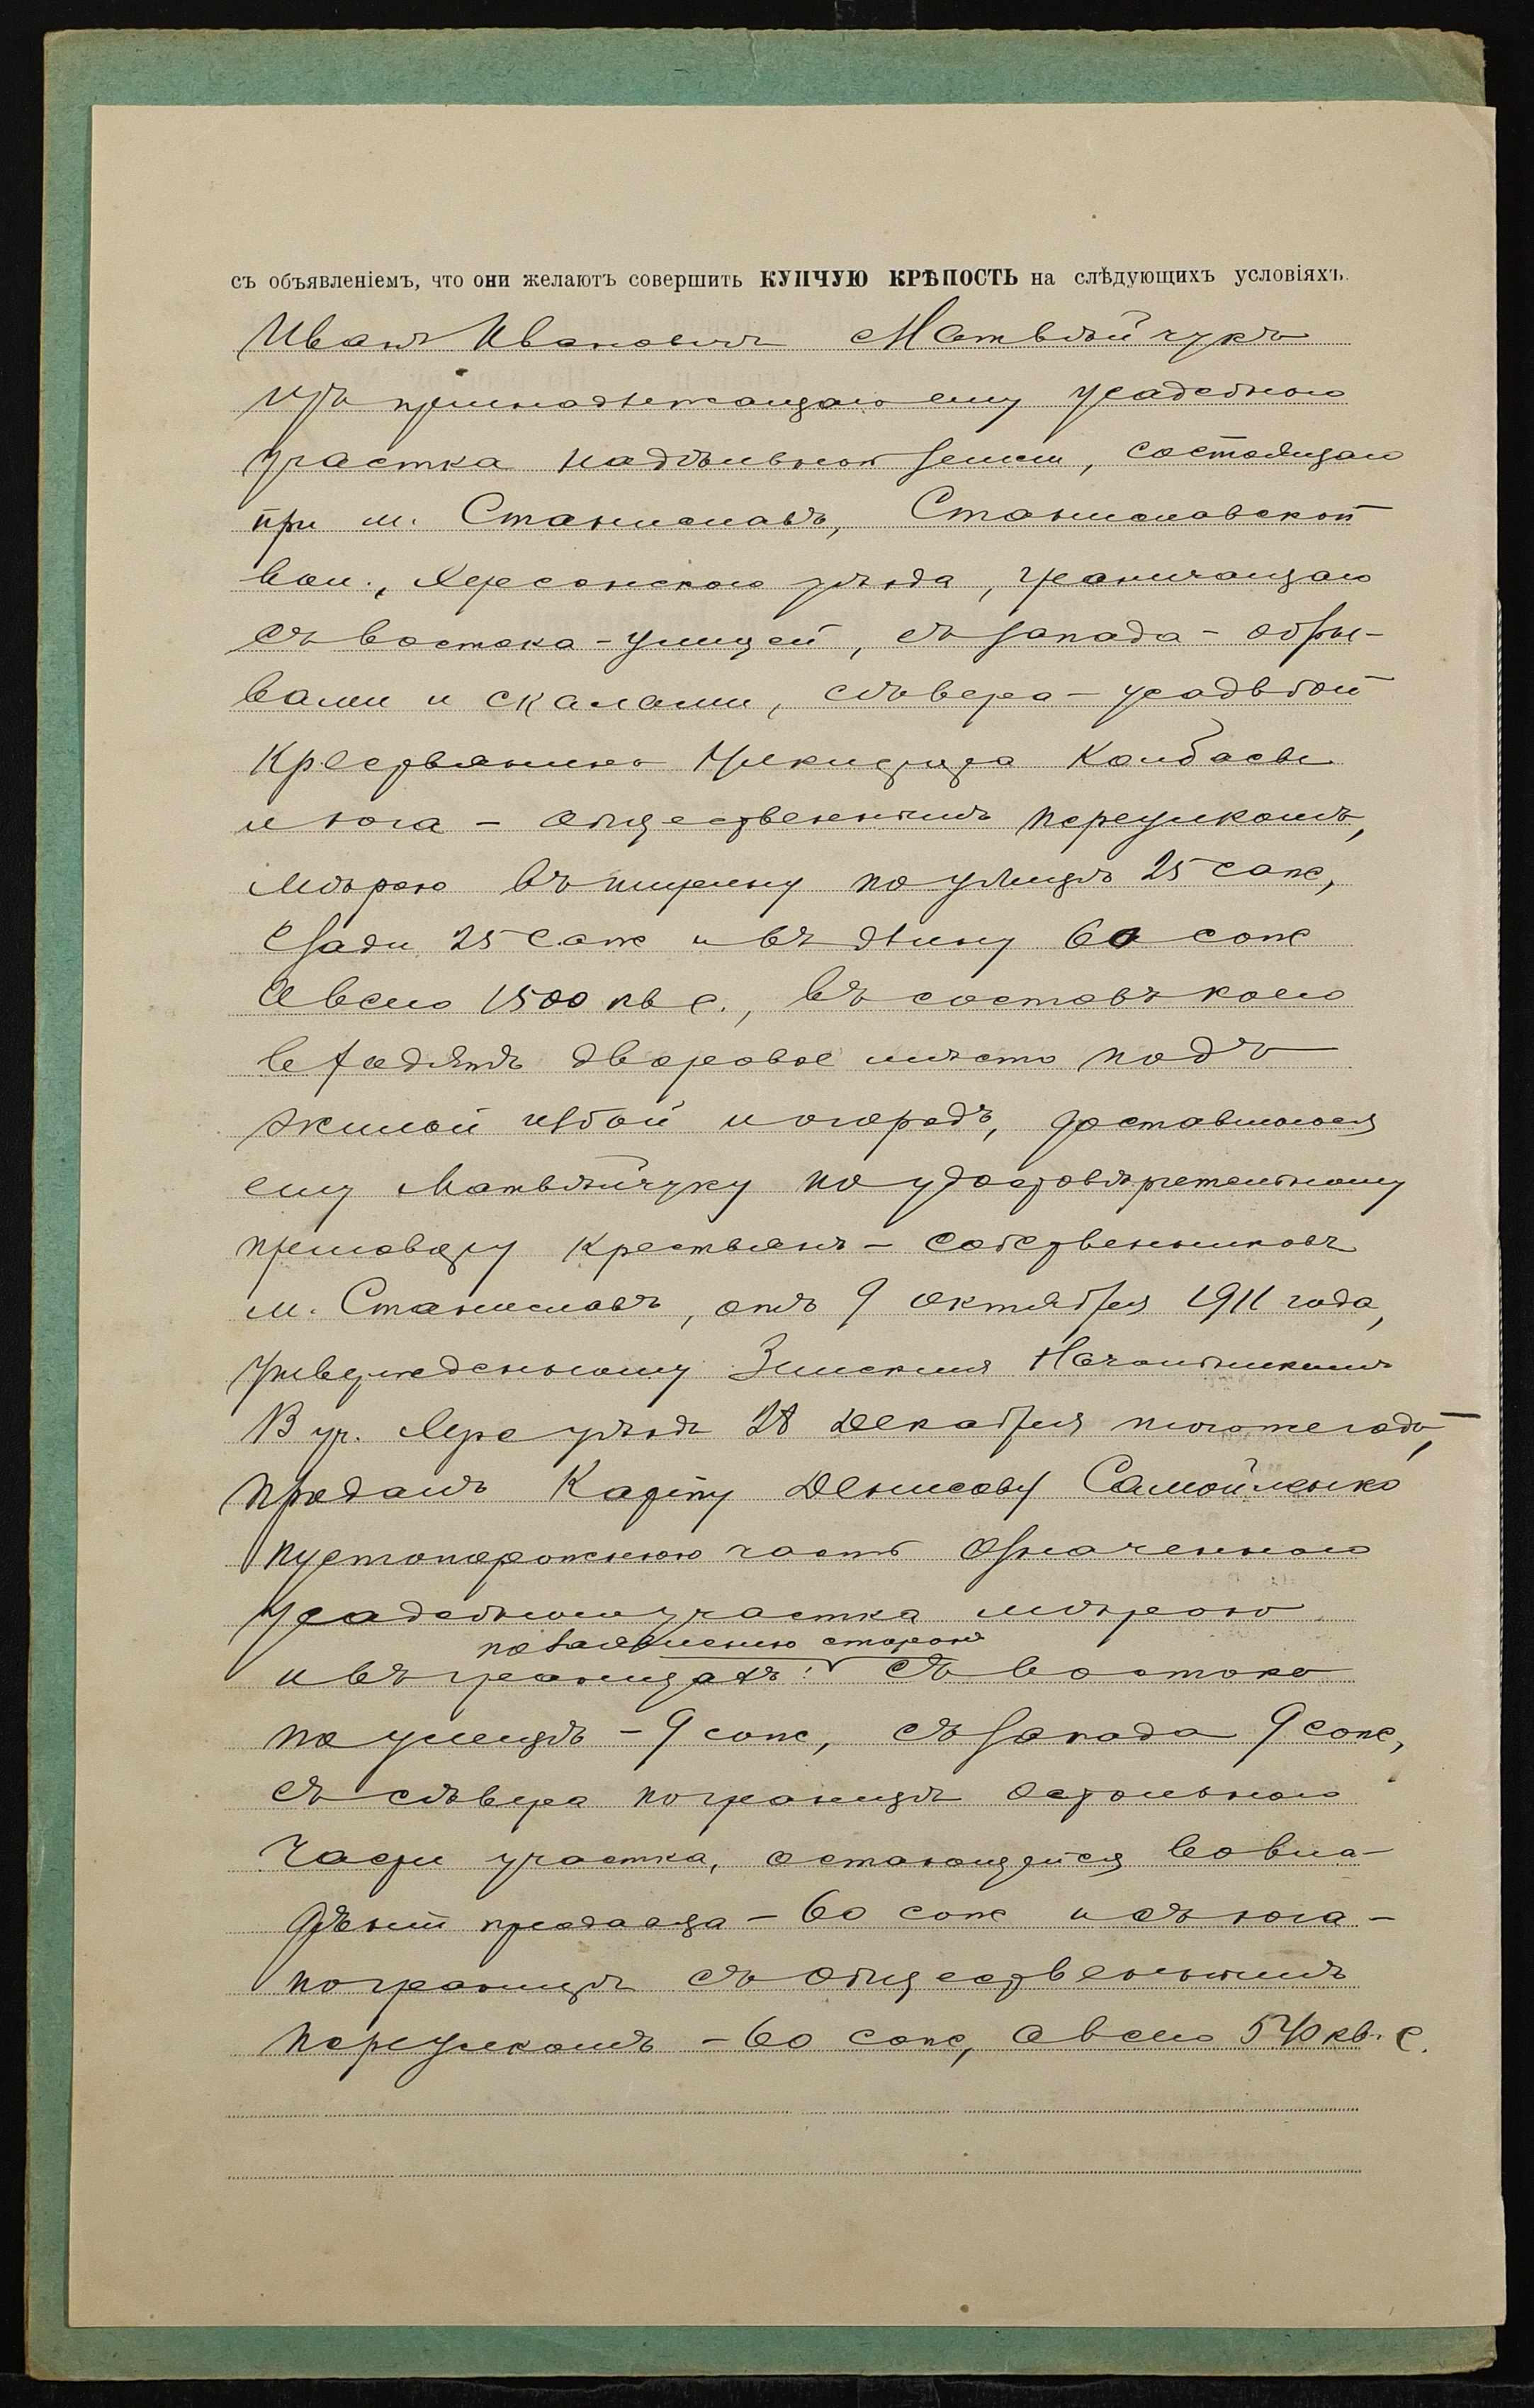 съ объявленіемъ, что они желаютъ совершить КУПЧУЮ КРѢПОСТЬ на слѣдующихъ условіяхъ.
Иванъ Ивановичъ Матвѣйчукъ
изъ принадлежащаго ему усадебнаго
участка надѣльной земли, состоящаго
при м. Станиславѣ, Станиславской
вол., Херсонскаго уѣзда, граничащаго
съ востока - улицей, съ запада - обры-
вами и скалами, сѣвера - усадьбой
крестьянина Колбасы
и юга - общественнымъ переулкомъ,
мѣрою въ ширину по улицѣ 25 саж,
сзади 25 саж и въ длину 60 саж
а всего 1500 кв с., въ составъ коего
входятъ дворовое мѣсто подъ
жилой избой и огородъ, доставшагося
ему Матвѣйчуку по удостовѣрительному
приговору крестьянъ - собственниковъ
м. Станиславъ, отъ 9 октября 1911 года,
утвержденному Земскимъ Начальникомъ
В уч. Херс уѣзда 28 декабря того же года,
продалъ Карпу Денисову Самойленко
пустопорожнюю часть означеннаго
усадебнаго участка мѣрою
по заявленію сторонъ
и въ границахъ: съ востока
по улицѣ - 9 саж, съ запада 9 саж,
съ сѣвера по границѣ остального
части участка, остающейся во вла-
дѣніи продавца - 60 саж и съ юга -
по границѣ съ общественнымъ
переулкомъ - 60 саж, а всего 540 кв. с.